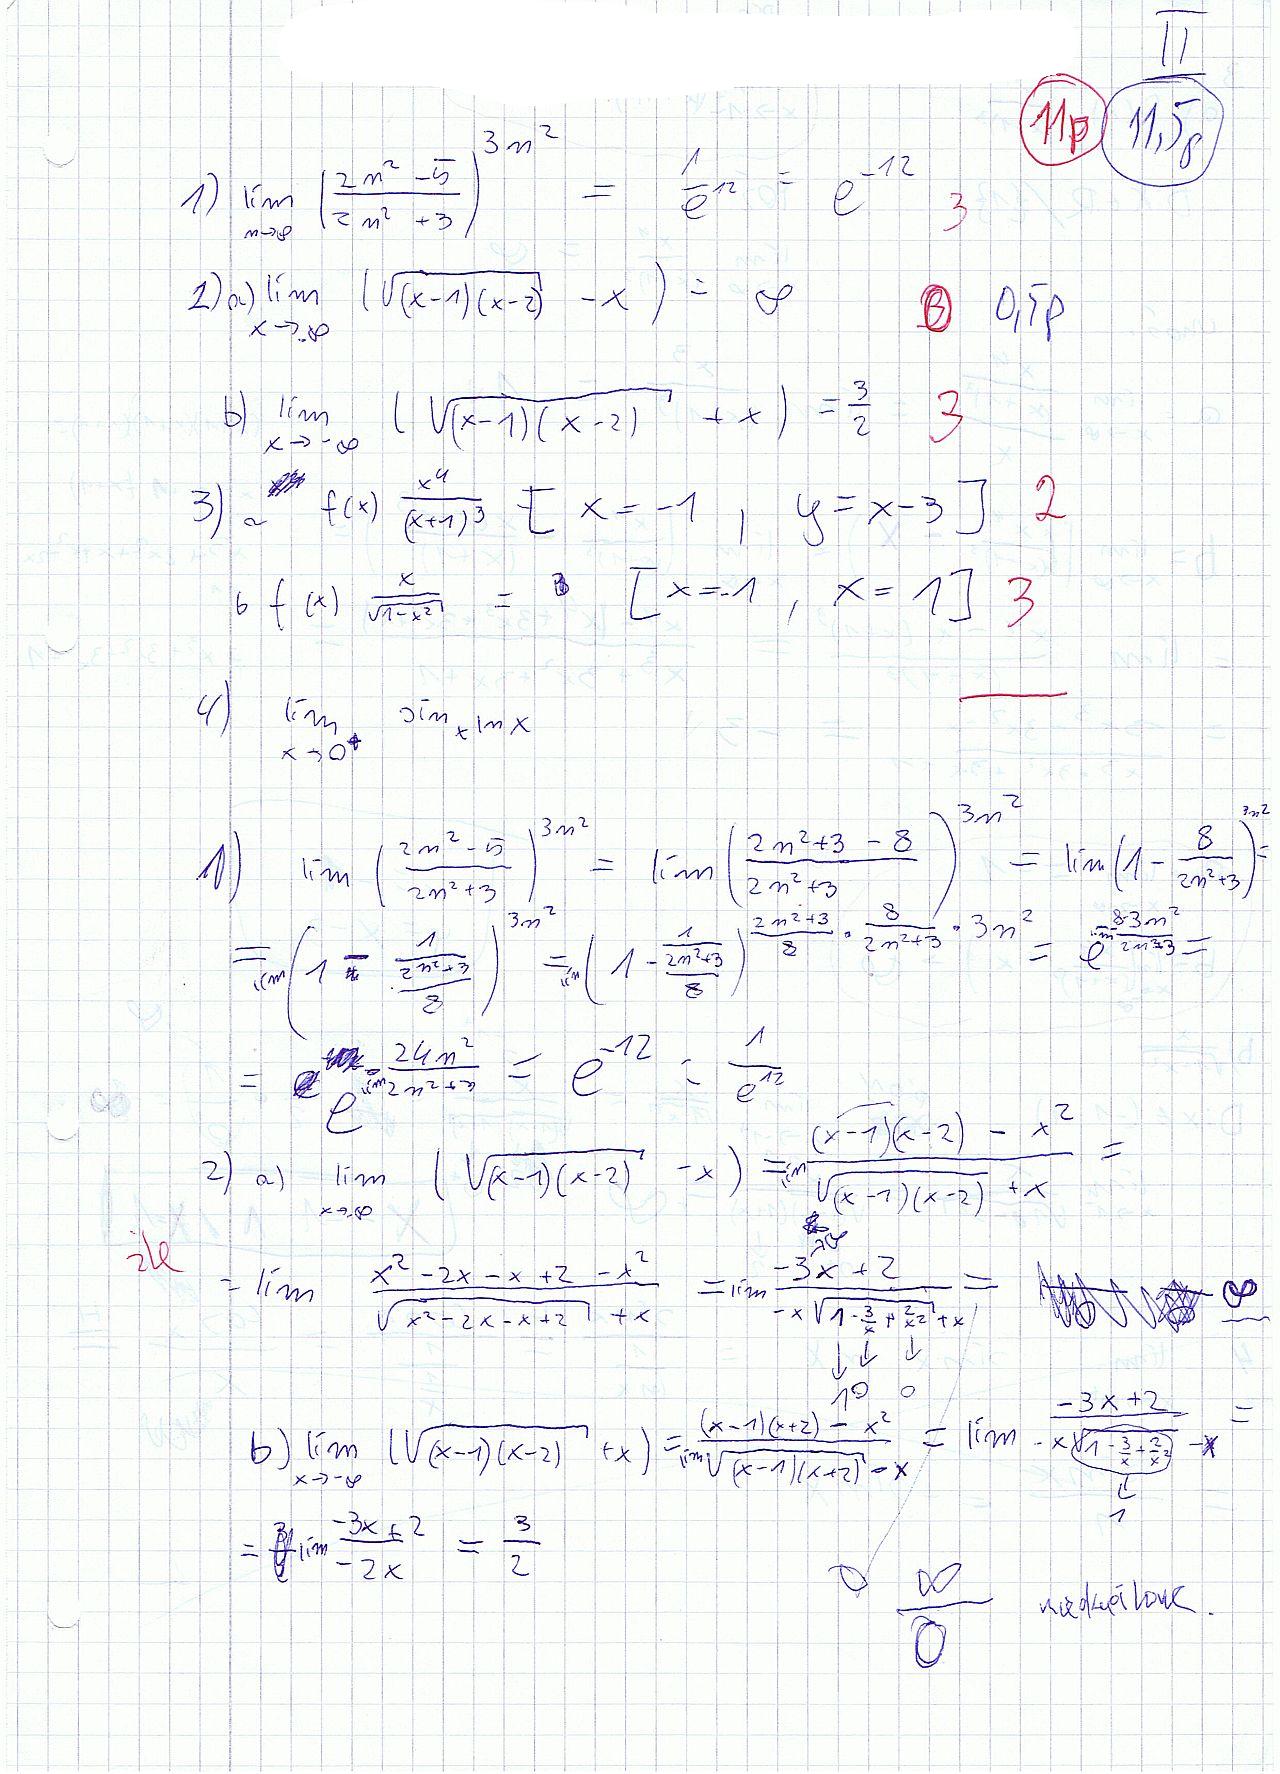 II
11p 11,5p
1) lim n→∞ ((2n² -5)/(2n² +3))^3n² = 1/e^12 = e^-12 3
2) a) lim x→-∞ (√((x-1)(x-2)) -x) = ∞ 0,5p
b) lim x→-∞ (√((x-1)(x-2)) + x) = 3/2 3
3) a f(x) x⁴/(x+1)³ [ x = -1 , y = x-3 ] 2
b f(x) x/√(1-x²) = [ x=-1 , x = 1 ] 3
4) lim x→0+ sin x ln x
1) lim ((2n² -5)/(2n²+3))^3n² = lim ((2n²+3 - 8)/(2n²+3))^3n² = lim (1 - 8/(2n²+3))^3n² =
= lim (1 - 1/((2n²+3)/8))^3n² = lim (1 - 1/((2n²+3)/8))^((2n²+3)/8 · 8/(2n²+3) · 3n²) = e^(lim -8·3n²/(2n²+3)) =
= e^(lim - 24n²/(2n²+3)) = e^-12 = 1/e^12
2) a) lim x→-∞ (√((x-1)(x-2)) -x) = lim ((x-1)(x-2) - x²)/(√((x-1)(x-2)) + x) =
źle
= lim (x² -2x -x +2 -x²)/(√(x² -2x -x +2) + x) = lim (-3x + 2)/(-x√(1 - 3/x + 2/x²) + x) = ∞
→∞
↓ ↓ ↓
1 0 0
b) lim x→-∞ (√((x-1)(x-2)) +x) = lim ((x-1)(x+2) - x²)/(√((x-1)(x+2)) - x) = lim (-3x+2)/(-x√(1 - 3/x + 2/x²) - x) =
↓
1
= lim (-3x+2)/(-2x) = 3/2
0 ∞/0